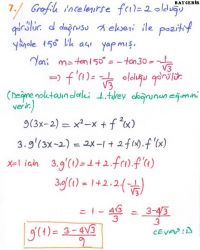 RAYDERİS
7.) Grafik incelenirse f(1)=2 olduğu
görülür. d doğrusu x ekseni ile pozitif
yönde 150° lik açı yapmış.
Yani m=tan150°=-tan30=-1/√3
⇒ f'(1)=-1/√3 olduğu görülür.
(Değme noktasındaki 1.türev doğrunun eğimini
verir.)
g(3x-2)=x²-x+f²(x)
3.g'(3x-2)=2x-1+2f(x).f'(x)
x=1 için 3.g'(1)=1+2.f(1).f'(1)
3.g'(1)=1+2.2.(-1/√3)
=1-4√3/3=3-4√3/3
g'(1)=3-4√3/9
CEVAP:B